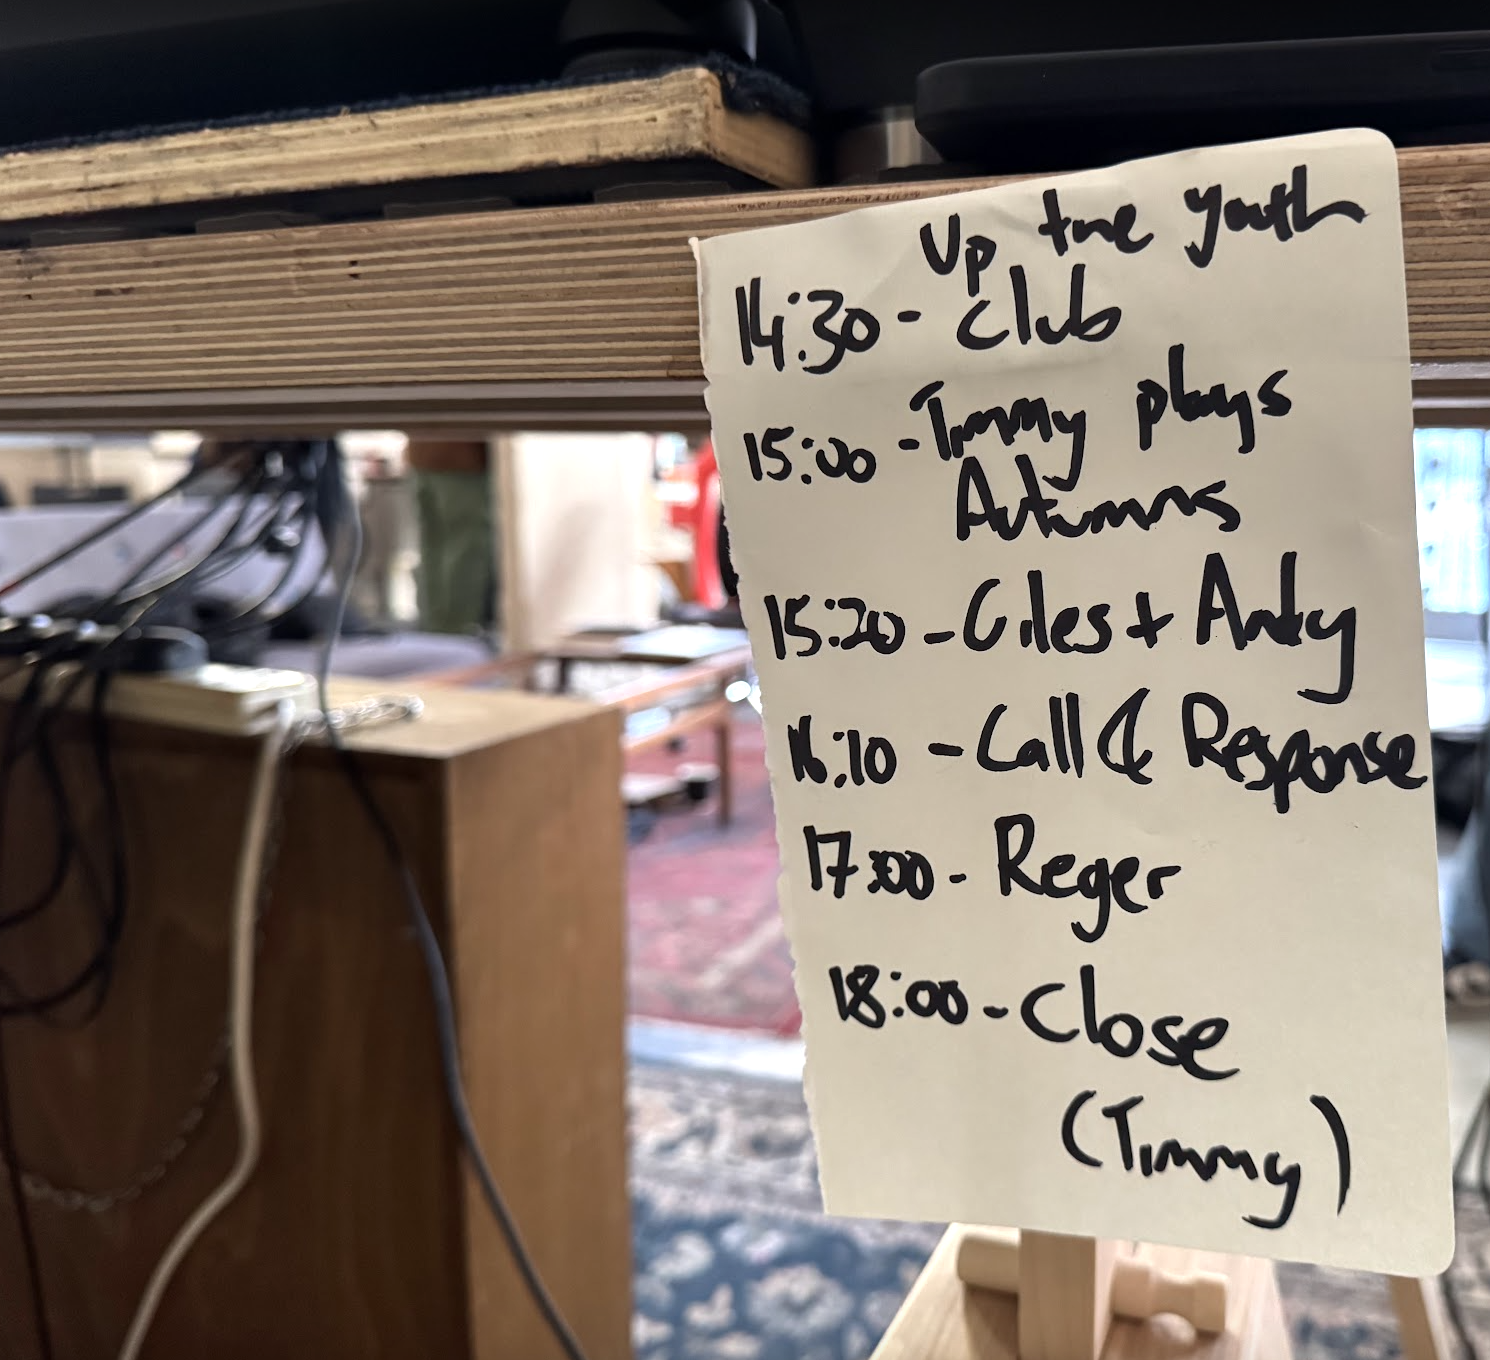 Up the youth
14:30 - Club
15:00 - Timmy plays
Autumns
15:20 - Giles + Andy
16:10 - Call & Response
17:00 - Reger
18:00 - Close
(Timmy)